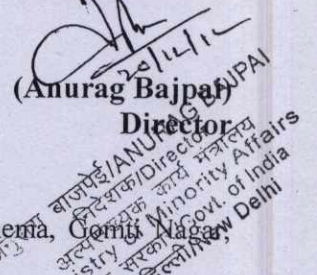 20/12/12
(Anurag Bajpai)
Director
बाजपेई/ANURAG BAJPAI
निदेशक/Director
अल्पसंख्यक कार्य मंत्रालय
Ministry of Minority Affairs
सरकार/Govt. of India
दिल्ली/New Delhi
Gomti Nagar,